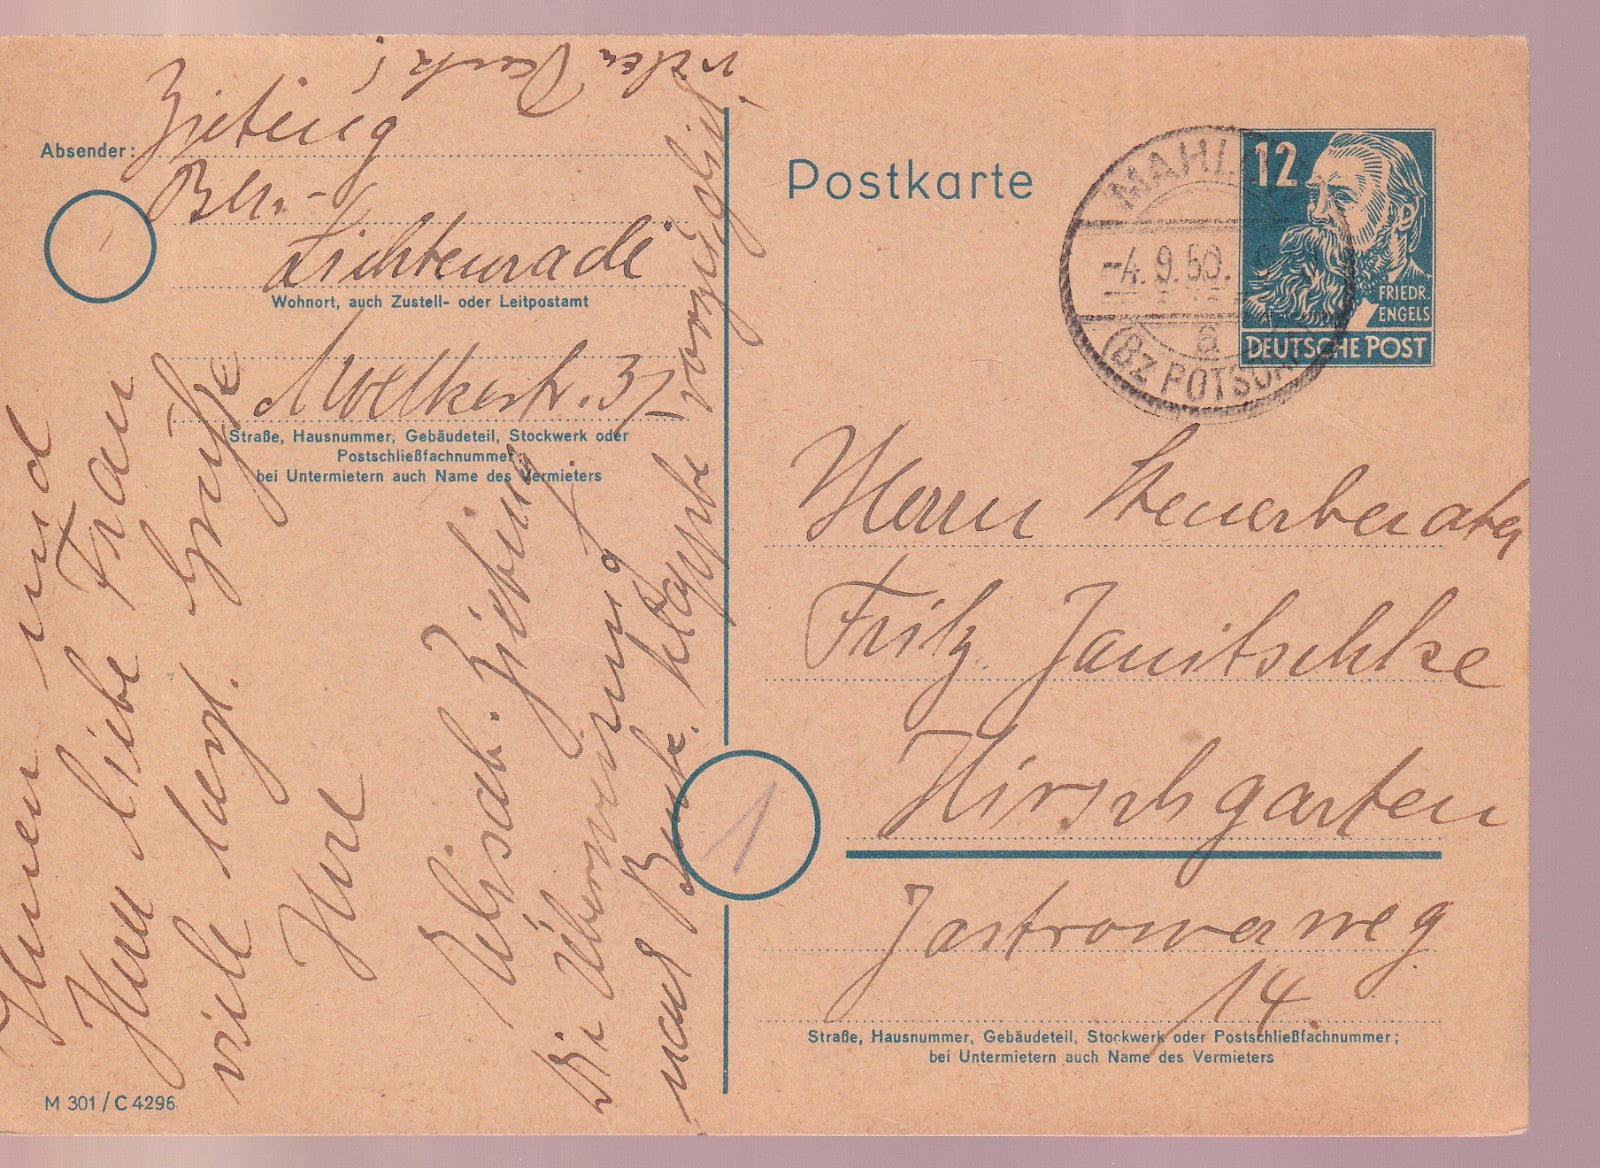 vielen Dank!
Absender: Ziebeig
Bln.-
Lichtenrade
Wohnort, auch Zustell- oder Leitpostamt
Moltkestr. 37
Straße, Hausnummer, Gebäudeteil, Stockwerk oder
Postschließfachnummer;
bei Untermietern auch Name des Vermieters
Ihnen und
Ihrer liebe Frau
viele herzl. Grüße
Ihre
Elisab.
Die Überweisung
nach Bank. klappte vorzüglich
M 301 / C 4296
Postkarte
MAHL
-4.9.50.
a
(Bz POTSDAM
12
FRIEDR.
ENGELS
DEUTSCHE POST
Herrn Steuerberater
Fritz Janitschke
Hirschgarten
1
Jastrowerweg
14.
Straße, Hausnummer, Gebäudeteil, Stockwerk oder Postschließfachnummer;
bei Untermietern auch Name des Vermieters